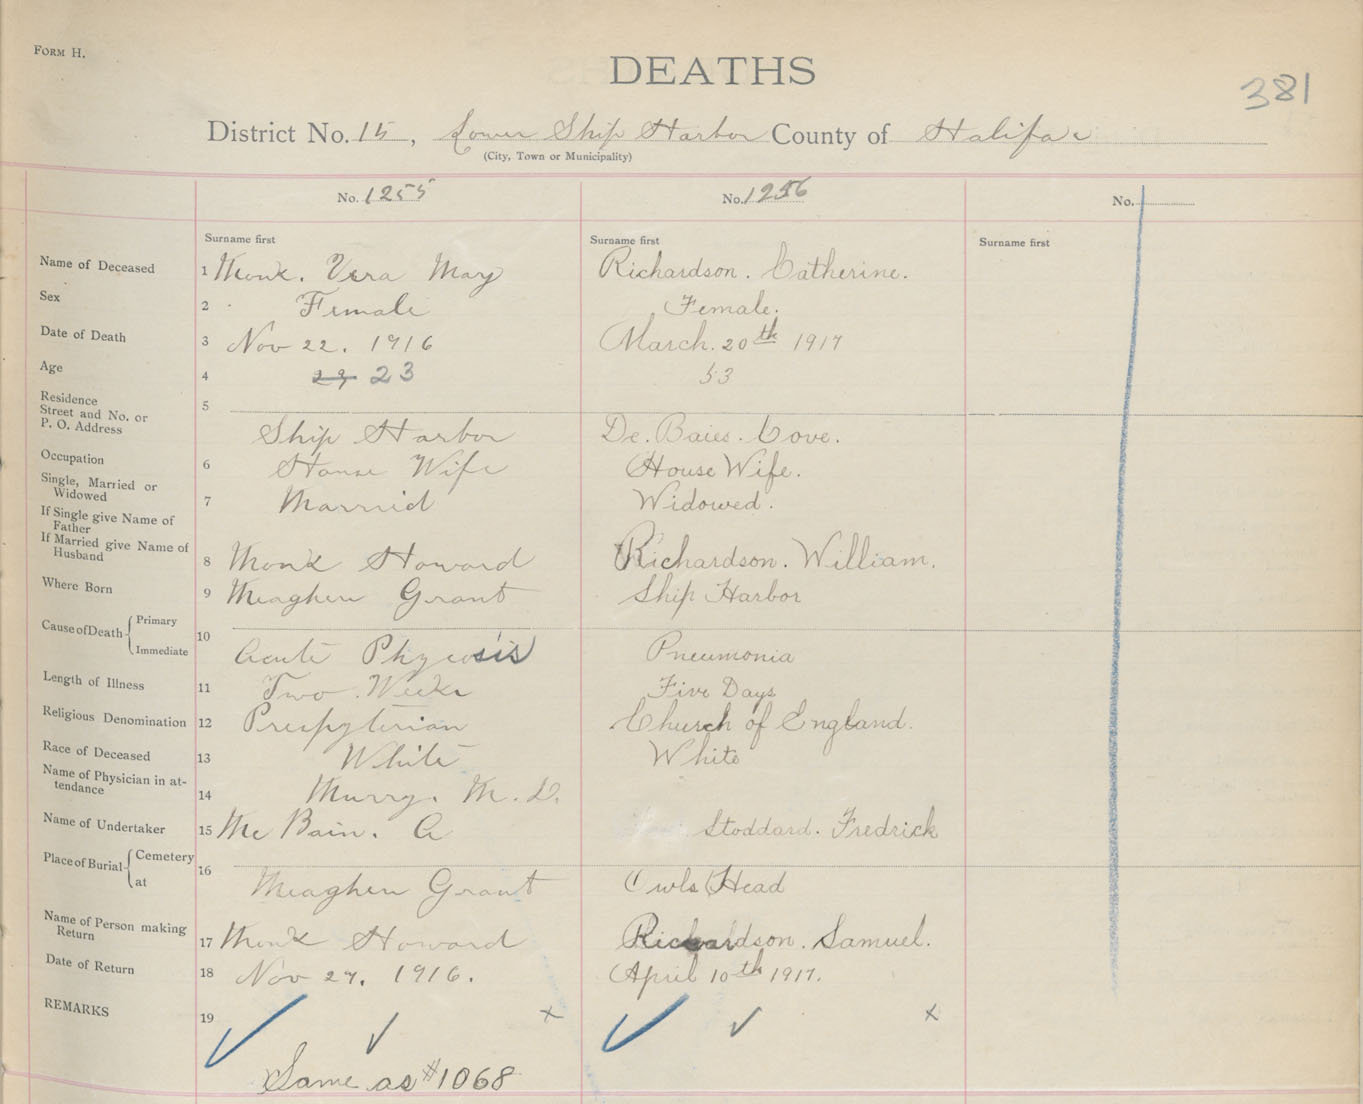 FORM H.
DEATHS
381
District No. 15, Lower Ship Harbor County of Halifax
(City, Town or Municipality)
No. 1255 No. 1256 No.
Surname first Surname first Surname first
Name of Deceased 1 Monk. Vera May Richardson. Catherine.
Sex 2 Female Female.
Date of Death 3 Nov 22. 1916 March. 20th 1917
Age 4 23 53
Residence 5
Street and No. or
P. O. Address Ship Harbor De. Baies. Cove.
Occupation 6 House Wife House Wife.
Single, Married or
Widowed 7 Married Widowed.
If Single give Name of
Father
If Married give Name of
Husband 8 Monk Howard Richardson. William.
Where Born 9 Meaghen Grant Ship Harbor
Cause of Death Primary 10
Immediate Acute Phycosis Pneumonia
Length of Illness 11 Two Weeks Five Days
Religious Denomination 12 Prespyterian Church of England.
Race of Deceased 13 White White
Name of Physician in at-
tendance 14 Murry. M. D.
Name of Undertaker 15 Mc Bain. A Stoddard. Fredrick
Place of Burial Cemetery 16
at Meaghen Grant Owls Head
Name of Person making
Return 17 Monk Howard Richardson. Samuel.
Date of Return 18 Nov 27. 1916. April 10th 1917.
REMARKS 19
Same as #1068